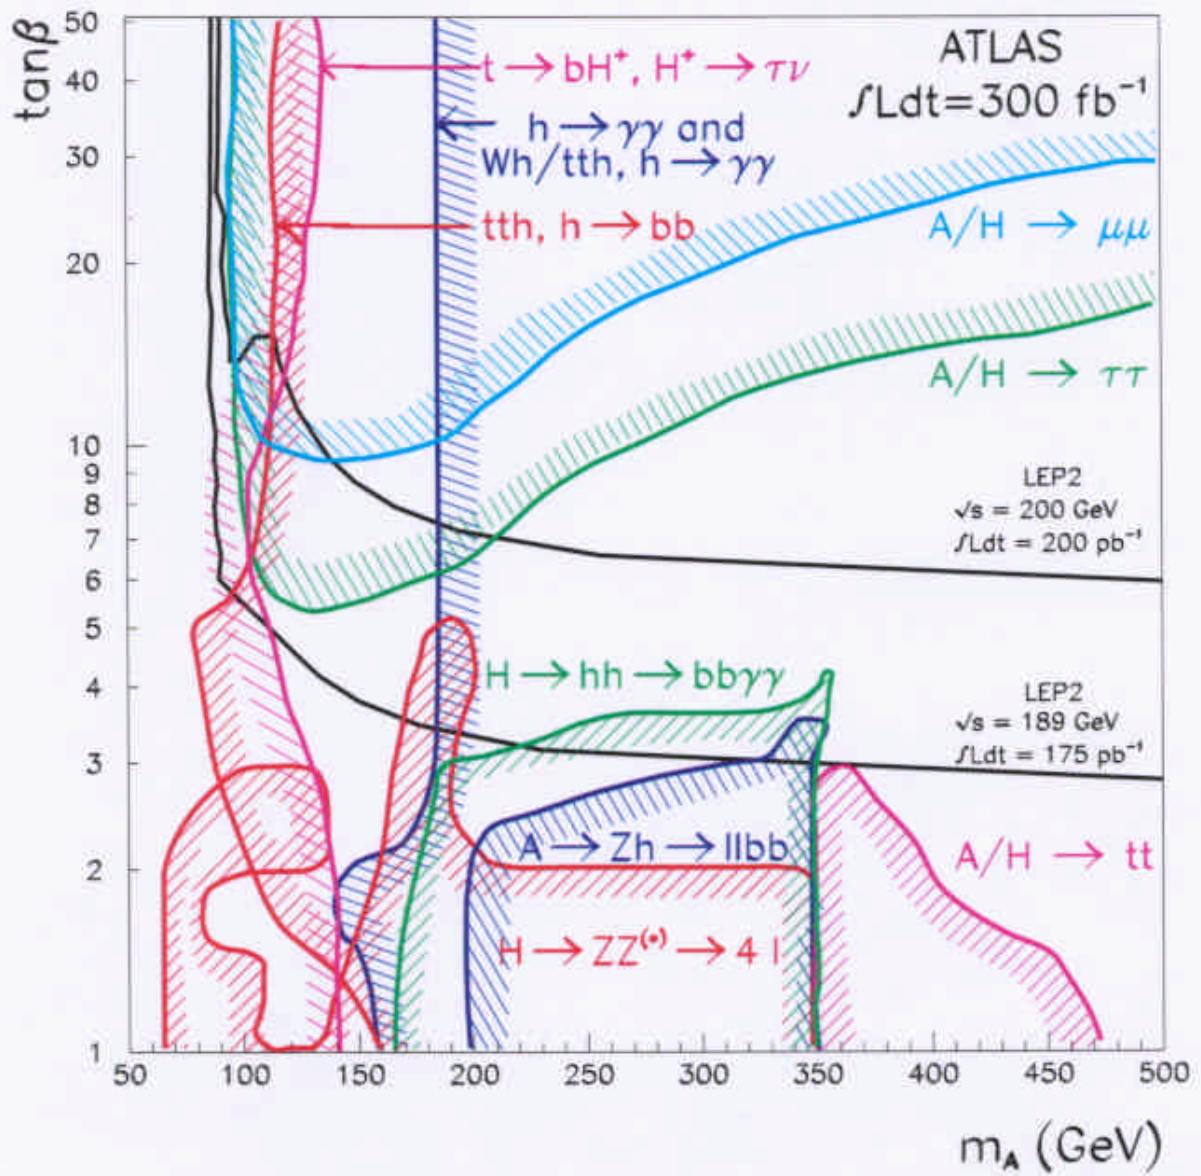 tanβ
50
40
30
20
10
9
8
7
6
5
4
3
2
1
t → bH⁺, H⁺ → τν
ATLAS
∫Ldt=300 fb⁻¹
h → γγ and
Wh/tth, h → γγ
tth, h → bb
A/H → μμ
A/H → ττ
LEP2
√s = 200 GeV
∫Ldt = 200 pb⁻¹
H → hh → bbγγ
LEP2
√s = 189 GeV
∫Ldt = 175 pb⁻¹
A → Zh → llbb
A/H → tt
H → ZZ⁽*⁾ → 4 l
50 100 150 200 250 300 350 400 450 500
m_A (GeV)